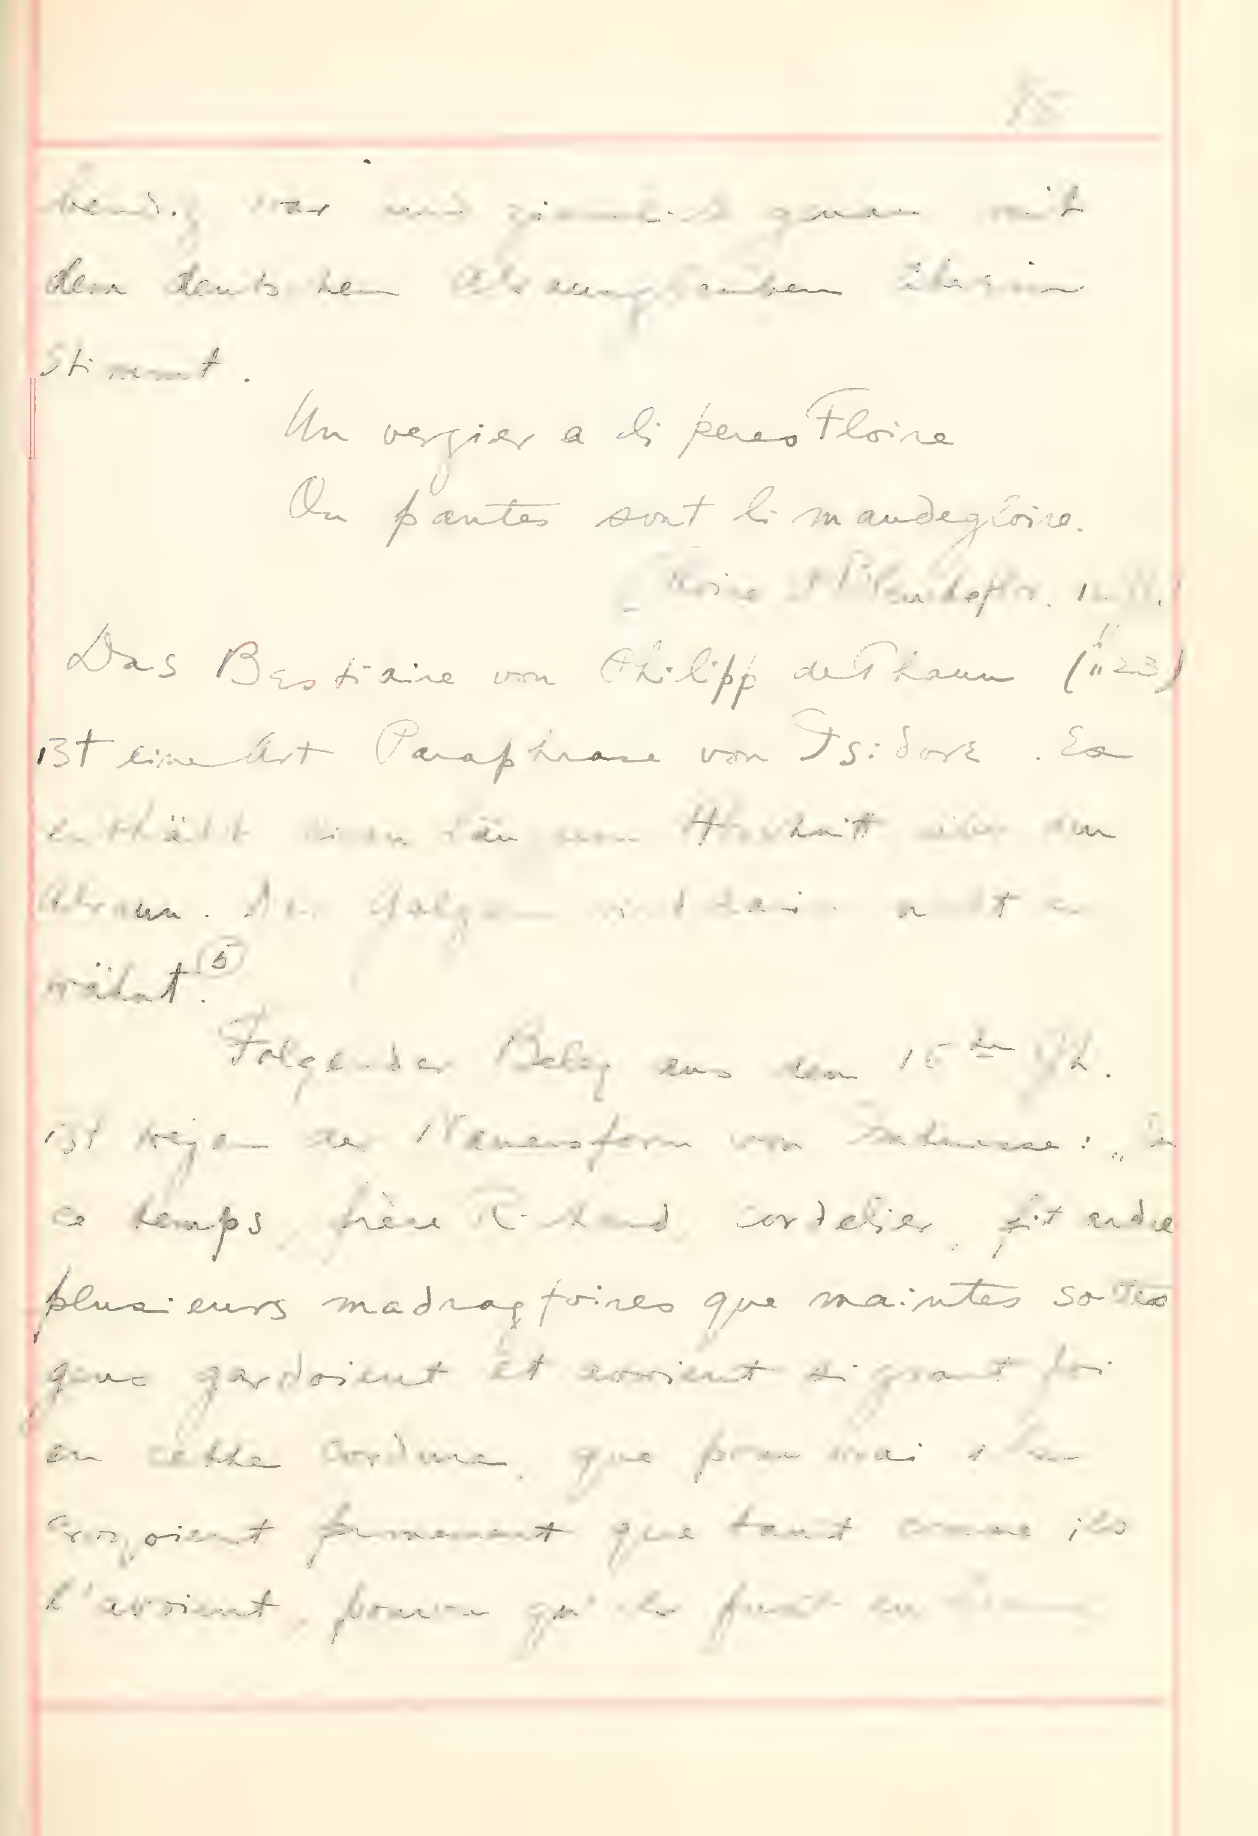 bendig war und ziemlich genau mit
dem deutschen Alraunglauben überein
stimmt.
Un vergier a li peres Floire
Ou pantes sont li mandegloire.
Das Bestiaire von Philipp de Thaun (1123)
ist eine Art Paraphrase von Isidore. Es
enthält einen längeren Abschnitt über den
Alraun. Der Galgen wird darin nicht er
wähnt. (5)
Folgender Beleg aus dem 15ten Jh.
ist wegen der Namensform von Interesse: „En
ce temps, frère Richard, cordelier, fit ardre
plusieurs madragloires que maintes sottes
gens gardoient et avoient si grant foi
en cette ordure, que pour vrai ils
croyoient fermement que tant comme ils
l'avoient, pourvu qu'